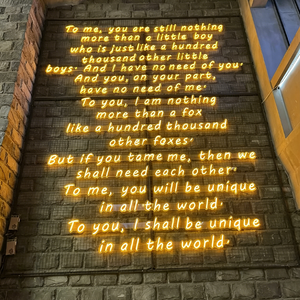 To me, you are still nothing
more than a little boy
who is just like a hundred
thousand other little
boys. And I have no need of you.
And you, on your part,
have no need of me.
To you, I am nothing
more than a fox
like a hundred thousand
other foxes.
But if you tame me, then we
shall need each other.
To me, you will be unique
in all the world.
To you, I shall be unique
in all the world.